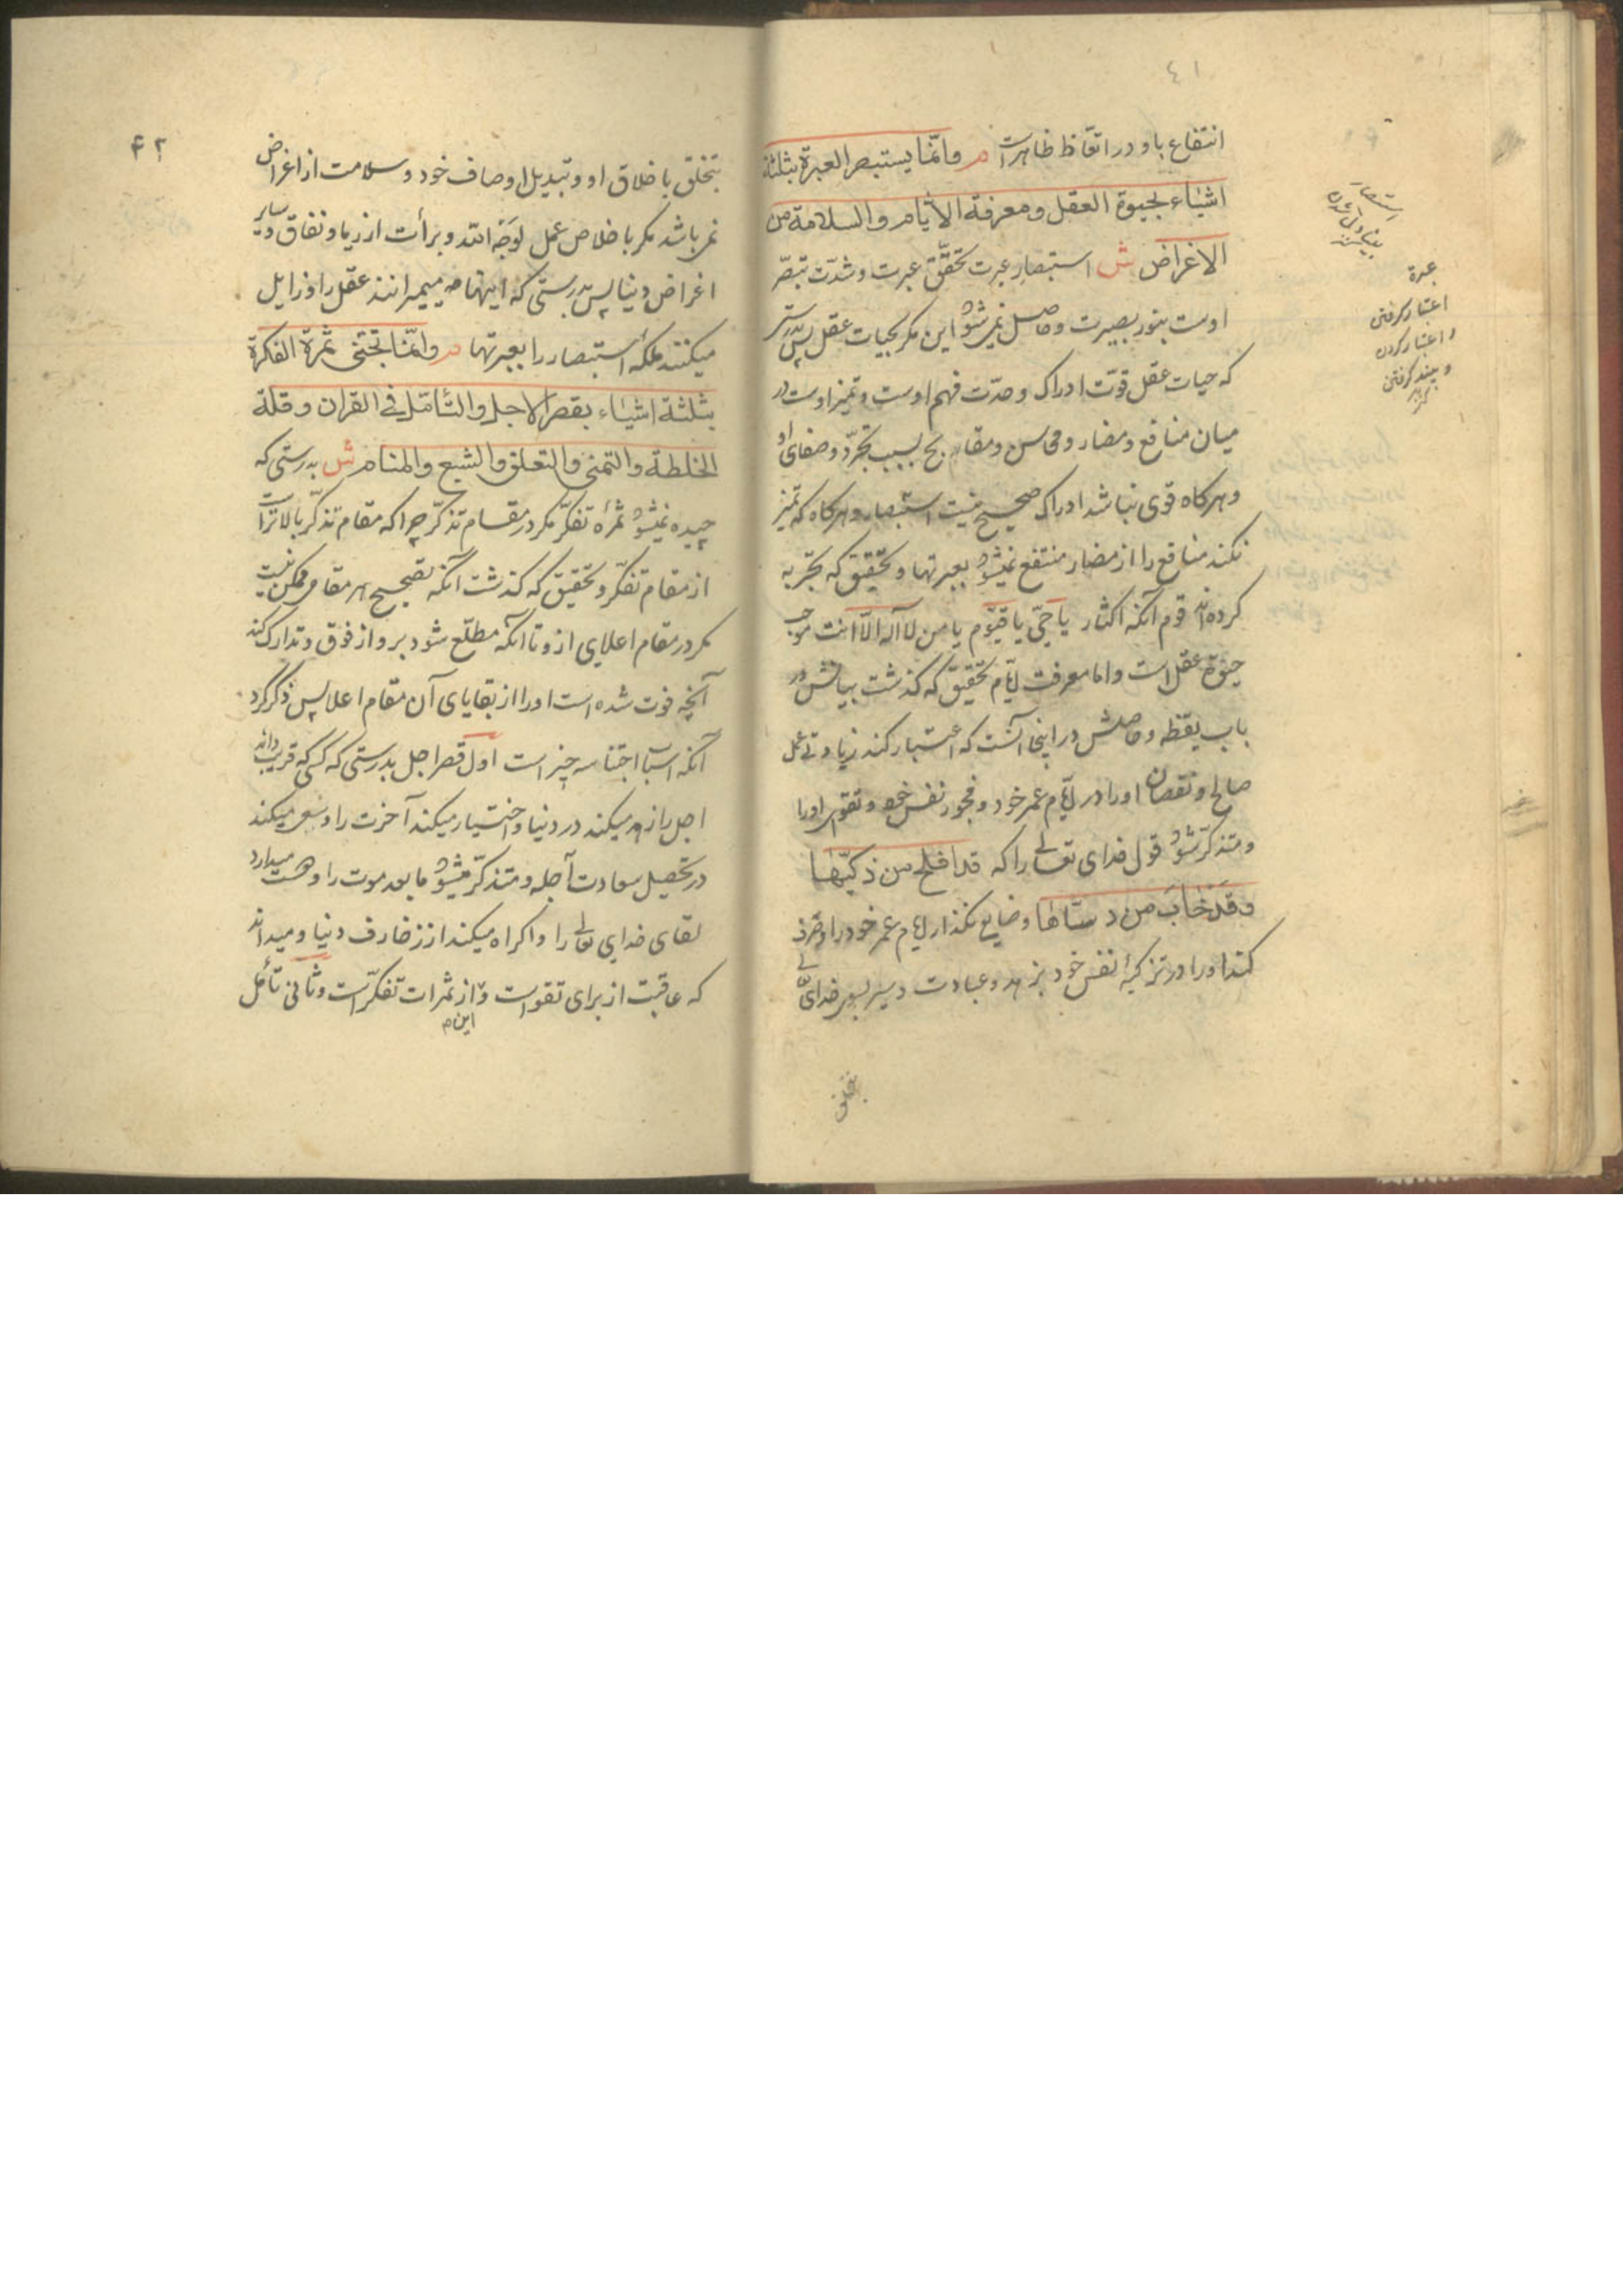 ٤١
انتفاع باو در اتعاظ ظاهراست م وانّما يستبصر العبرة بثلثة
اشياء بحيوة العقل ومعرفة الأيّام والسلامة من
الاغراض ش استبصار عبرت تحقّق عبرت وشدّت تبصّر
اوست بنور بصيرت وحاصل نمى شود اين مكر بحيات عقل پس بدرستى
كه حيات عقل قوّت ادراك وحدّت فهم اوست وتميز اوست در
ميان منافع ومضار ومحاسن ومقابح بسبب تجرّد وصفاى او
وهركاه قوى نباشد ادراك صحيح نيست استبصار وهركاه كه تميز
نكند منافع را از مضار منتفع نميشود بعبرتها وتحقيق كه تجربه
كرده‌اند قوم آنكه اكثار يا حىّ يا قيّوم يا من لا اله الّا انت موجب
حيوة عقل است واما معرفت ايّام تحقيق كه كذشت بيانش در
باب يقظه وحاصلش در اينجا آنست كه اعتبار كند زيادتى عمل
صالح ونقصان اورا در ايّام عمر خود وفجور نفس خود وتقوى اورا
ومتذكّر شود قول خداى تعالى را كه قد افلح من زكيّها
وقد خاب من دسّاها وضايع نكذارد ايّام عمر خود را وصرف
كند اورا در تزكيهٔ نفس خود بزهد وعبادت وسير بسوى خداى تعالى
استبصار
عبرة
اعتبار كرفتن
واعتبار كردن
وپند كرفتن
بتخلق
٤٢
بتخلق باخلاق او وتبديل اوصاف خود وسلامت از اغراض
نمى باشد مكر باخلاص عمل لوجه الله وبرأت از ريا ونفاق وساير
اغراض دنيا پس بدرستى كه اينهامه ميميرانند عقل را وزايل
ميكنند ملكهٔ استبصار را بعبرتها م وانّما تجتنى ثمرة الفكرة
بثلثة اشياء بقصر الاجل والتّأمّل فى القران وقلة
الخلطة والتمنى والتعلق والشبع والمنام ش بدرستى كه
چيده نميشود ثمرهٔ تفكّر مكر در مقام تذكّر چرا كه مقام تذكّر بالاتر است
از مقام تفكّر وتحقيق كه كذشت آنكه تصحيح هر مقام ممكن نيست
مكر در مقام اعلاى ازو تا آنكه مطلّع شود برو از فوق وتدارك كند
آنچه فوت شده است اورا از بقاياى آن مقام اعلا پس ذكر كرد
آنكه اسباب اجتنا سه چيز است اول قصر اجل بدرستى كه كسى كه قريب داند
اجل را زهد ميكند در دنيا واختيار ميكند آخرت را وسعى ميكند
در تحصيل سعادت آجله ومتذكّر ميشود ما بعد موت را ودوست ميدارد
لقاى خداى تعالى را واكراه ميكند از زخارف دنيا وميداند
كه عاقبت از براى تقواست و از ثمرات تفكّر است وثانى تأمّل
اين م